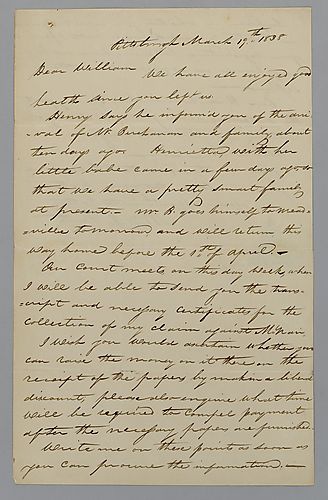 Pittsburgh March 19th 1838
Dear William
We have all enjoyed good
health since you left us
Henry says he informed you of the arri-
-val of Mr. Buchanan and family about
ten days ago Henrietta with her
little babe came in a few days ago so
that we have a pretty smart family
at present.- Mr B. goes himself to Mead-
-ville tomorrow and will return this
way home before the 1st. of April.-
Our Court meets on this day week when
I will be able to send you the trans-
-cript and necessary certificates for the
collection of my claim against
I wish you would ascertain whether you
can raise the money on it there on the
receipt of the papers by making a liberal
discount, please also enquire what time
will be required to compel payment
after the necessary papers are furnished.
Write me on these points as soon as
you can procure the information.-